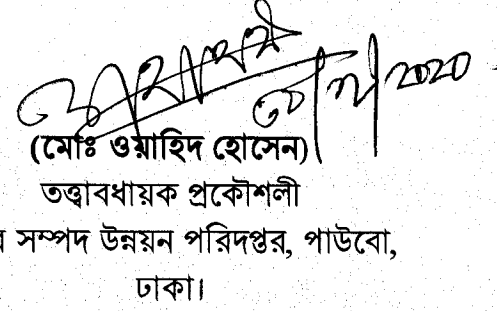 (মোঃ ওয়াহিদ হোসেন)
তত্ত্বাবধায়ক প্রকৌশলী
সম্পদ উন্নয়ন পরিদপ্তর, পাউবো,
ঢাকা।